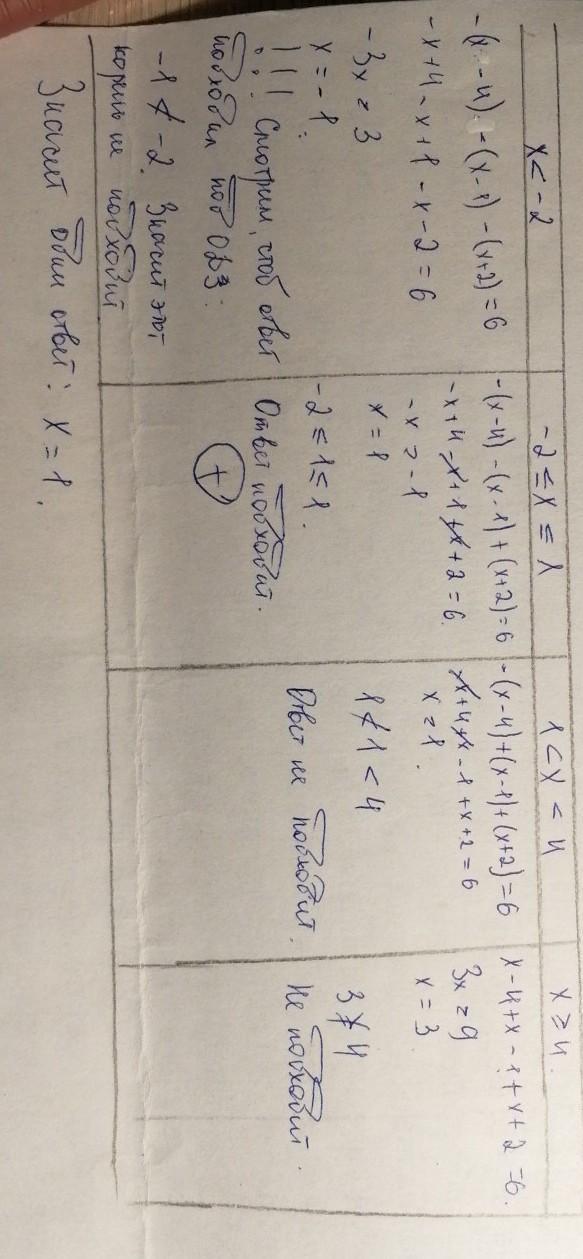 x < -2
-(x-4) - (x-1) - (x+2) = 6
-x+4 - x+1 - x-2 = 6
-3x = 3
x = -1.
!!! Смотрим, чтоб ответ
подходил под ОДЗ:
-1 ≮ -2. Значит этот
корень не подходит
-2 ≤ x ≤ 1
-(x-4) - (x-1) + (x+2) = 6
-x+4 -x+1 +x+2 = 6.
-x = -1
x = 1
-2 ≤ 1 ≤ 1.
Ответ подходит.
+
1 < x < 4
-(x-4)+(x-1)+(x+2) = 6
-x+4+x-1+x+2 = 6
x = 1.
1 ≮ 1 < 4
Ответ не подходит.
x ≥ 4.
x-4+x-1+x+2 = 6.
3x = 9
x = 3
3 ≱ 4
Не подходит.
Значит один ответ: x = 1.